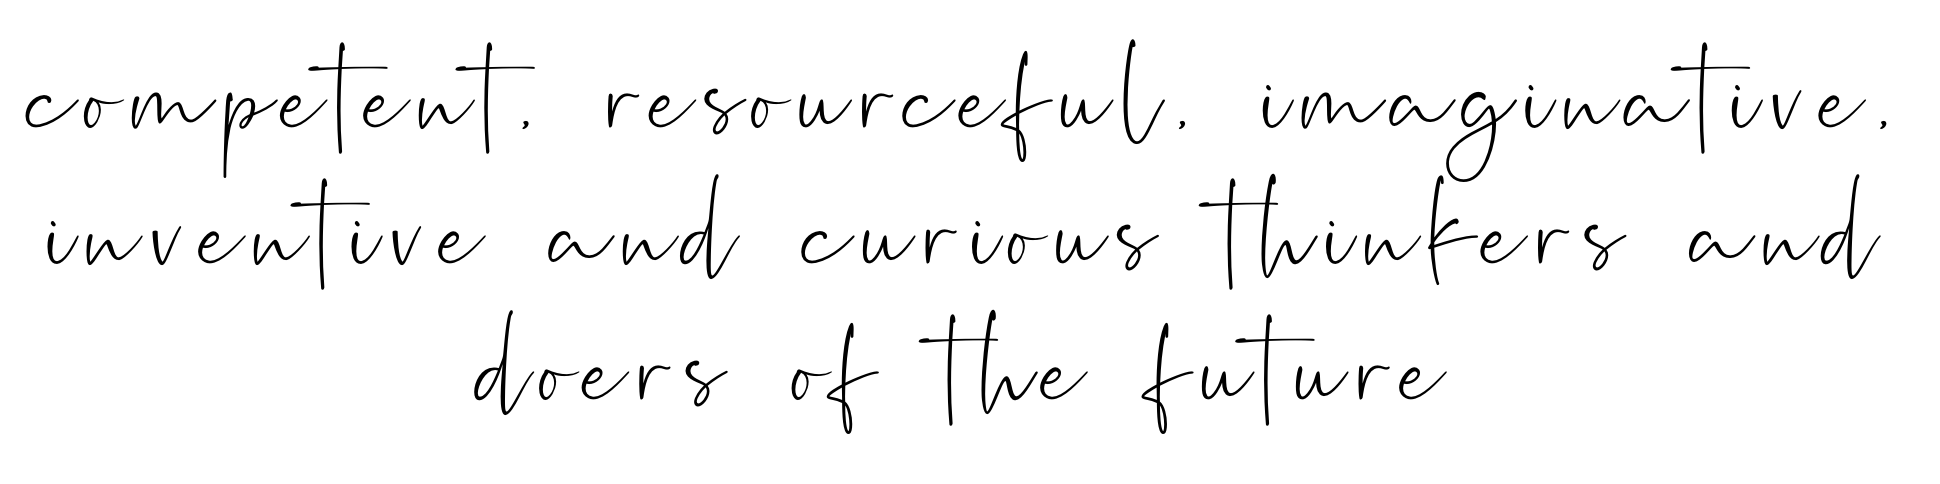 competent, resourceful, imaginative,
inventive and curious thinkers and
doers of the future